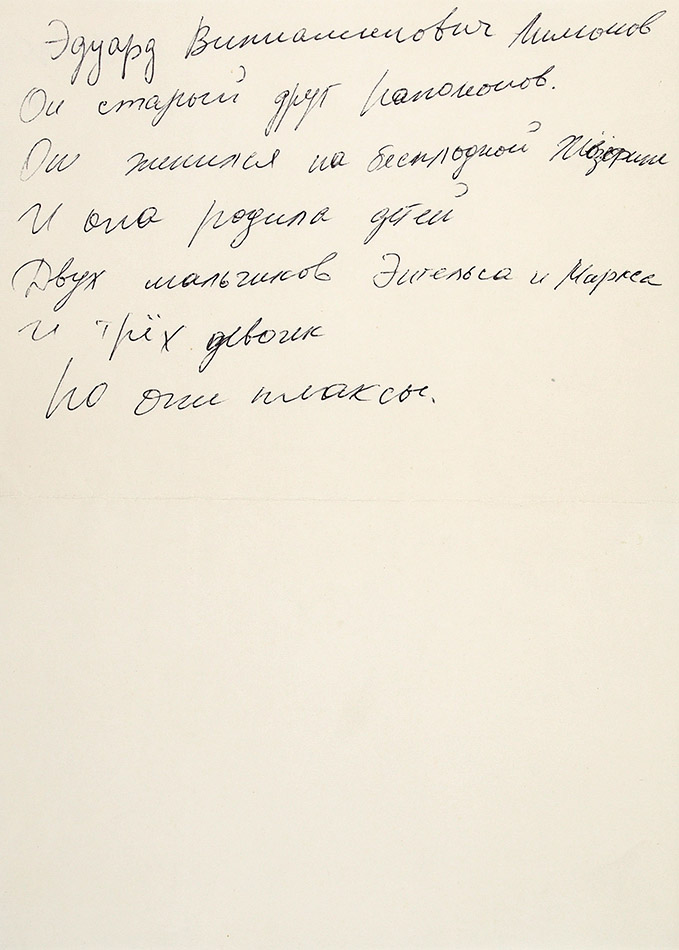 Эдуард Виниаминович Лимонов
Он старый друг Наполеонов.
Он женился на бесплодной Жозефине
И она родила детей
Двух мальчиков Энгельса и Маркса
И трёх девочек
Но они плаксы.